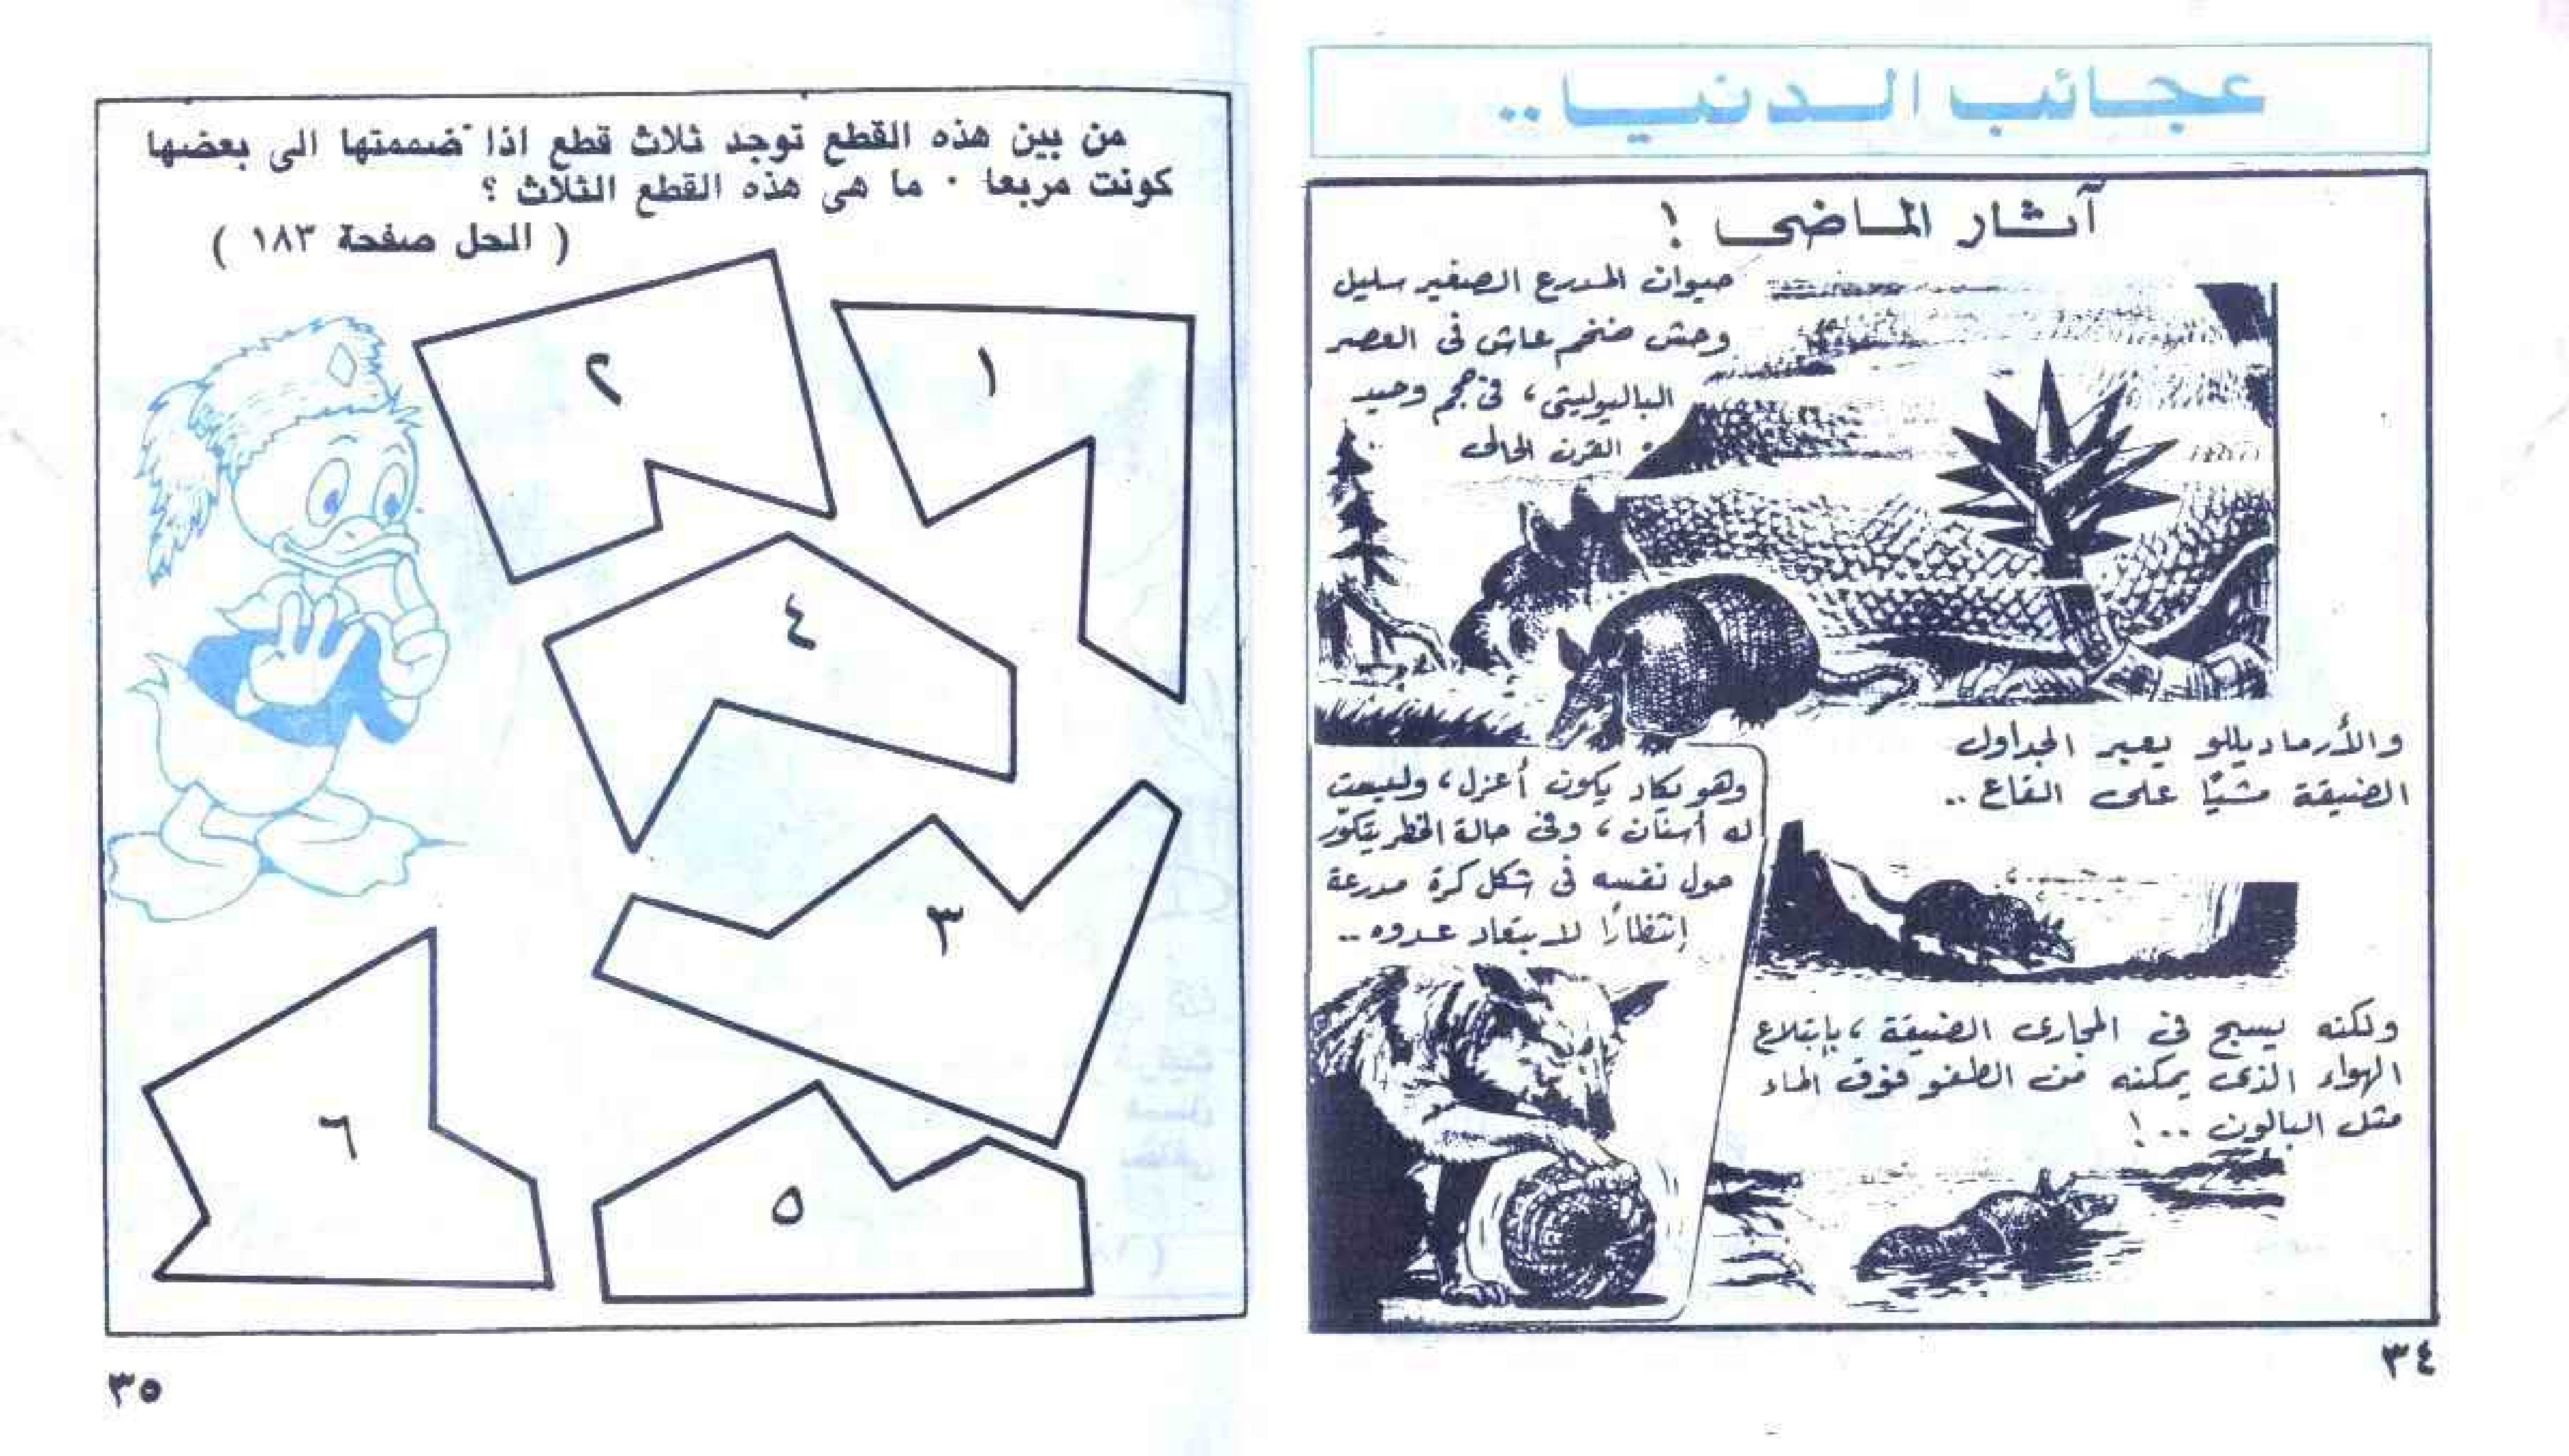 عجائب الدنيا ..
آثار الماضى !
حيوان المدرع الصغير سليل
وحش ضخم عاش فى العصر
الباليوليتى ، فى حجم وحيد
القرن الحالى
والأرماديللو يعبر الجداول
الضيقة مشيًا على القاع ..
وهو يكاد يكون أعزل ، وليست
له أسنان ، وفى حالة الخطر يتكوّر
حول نفسه فى شكل كرة مدرعة
إنتظارًا لابتعاد عدوه ..
ولكنه يسبح فى المجارى الضيقة ، بإبتلاع
الهواء الذى يمكنه من الطفو فوق الماء
مثل البالون .. !
٣٤
من بين هذه القطع توجد ثلاث قطع اذا ضممتها الى بعضها
كونت مربعا . ما هى هذه القطع الثلاث ؟
( الحل صفحة ١٨٣ )
١
٢
٤
٣
٦
٥
٣٥